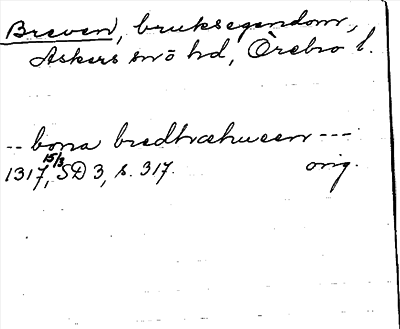 Breven, bruksegendom,
Askers sn o hd, Örebro l.
-- bona bredhræhwcen ---
1317 15/3, SD 3, s. 317. orig.